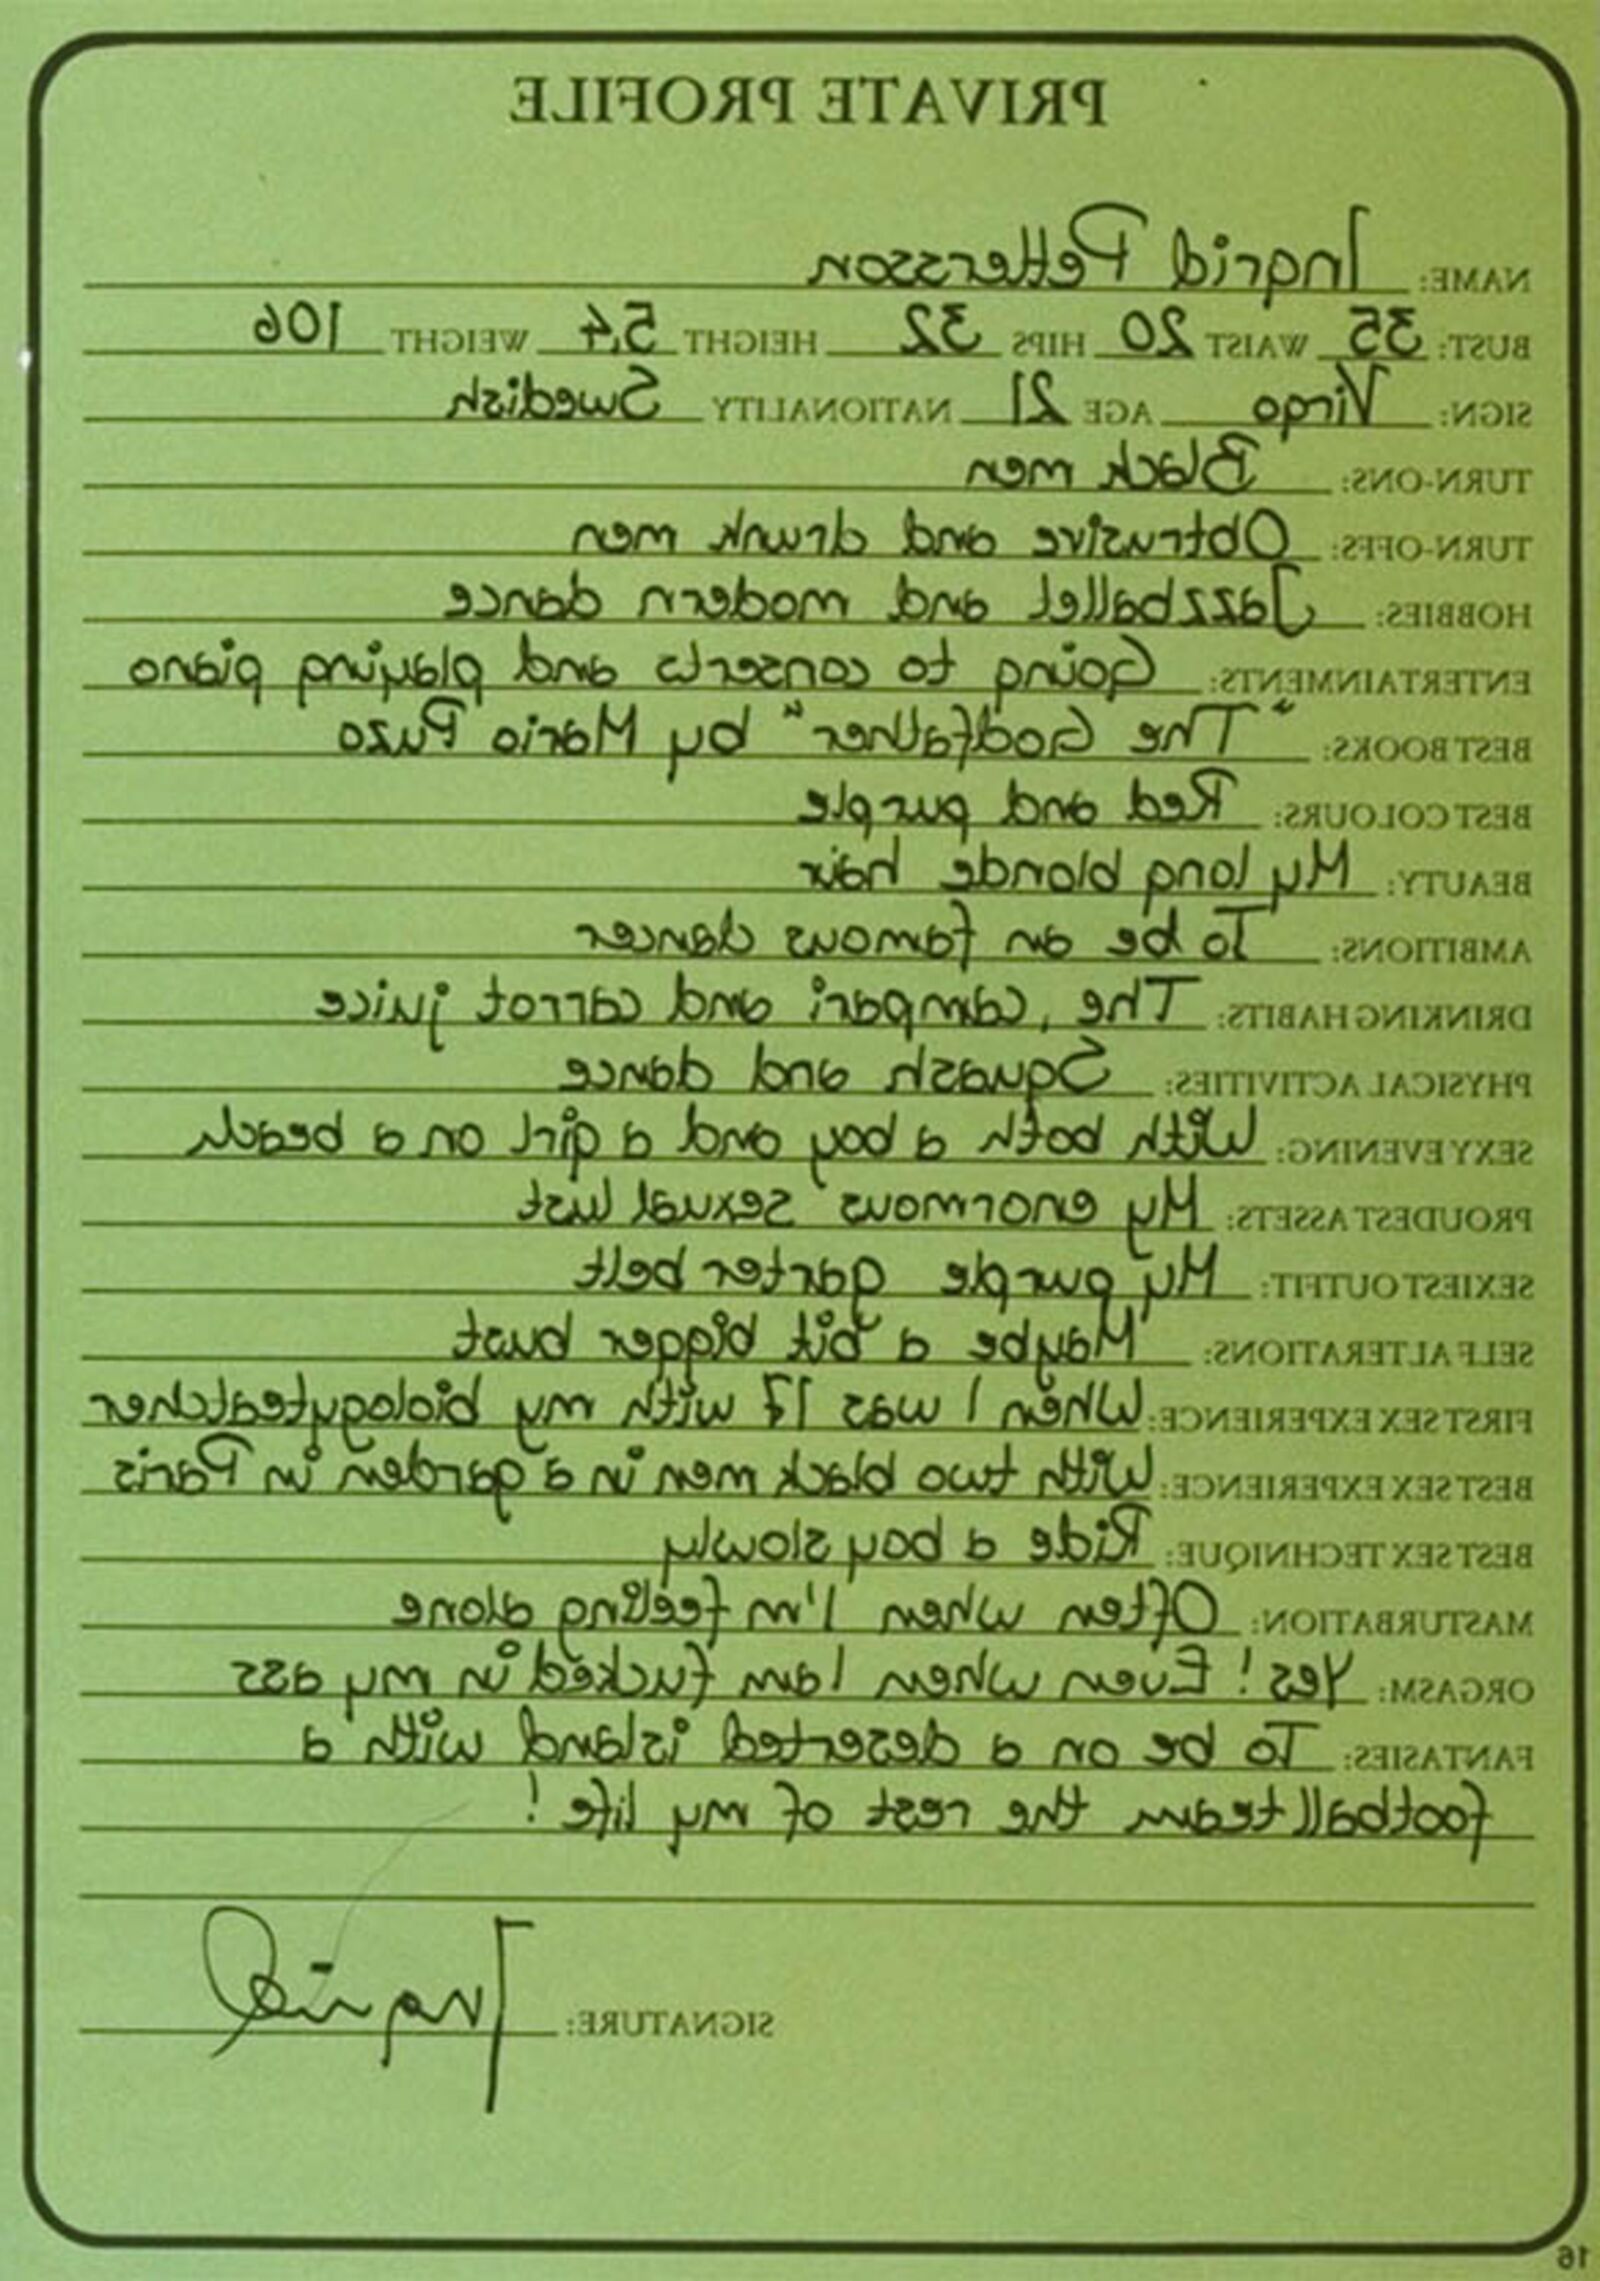 PRIVATE PROFILE
NAME: Ingrid Pettersson
BUST: 35 WAIST 20 HIPS 32 HEIGHT 5,4 WEIGHT 106
SIGN: Virgo AGE 21 NATIONALITY Swedish
TURN-ONS: Black men
TURN-OFFS: Obtrusive and drunk men
HOBBIES: Jazzballet and modern dance
ENTERTAINMENTS: Going to conserts and playing piano
BEST BOOKS: "The Godfather" by Mario Puzo
BEST COLOURS: Red and purple
BEAUTY: My long blonde hair
AMBITIONS: To be an famous dancer
DRINKING HABITS: The, campari and carrot juice
PHYSICAL ACTIVITIES: Squash and dance
SEXY EVENING: With both a boy and a girl on a beach
PROUDEST ASSETS: My enormous sexual lust
SEXIEST OUTFIT: My purple garter belt
SELF ALTERATIONS: Maybe a bit bigger bust
BEST SEX EXPERIENCE: With two black men in a garden in Paris
BEST SEX TECHNIQUE: Ride a boy slowly
MASTURBATION: Often when I'm feeling alone
ORGASM: Yes! Even when I am fucked in my ass
FANTASIES: To be on a deserted island with a
football team the rest of my life!
SIGNATURE: Ingrid
16